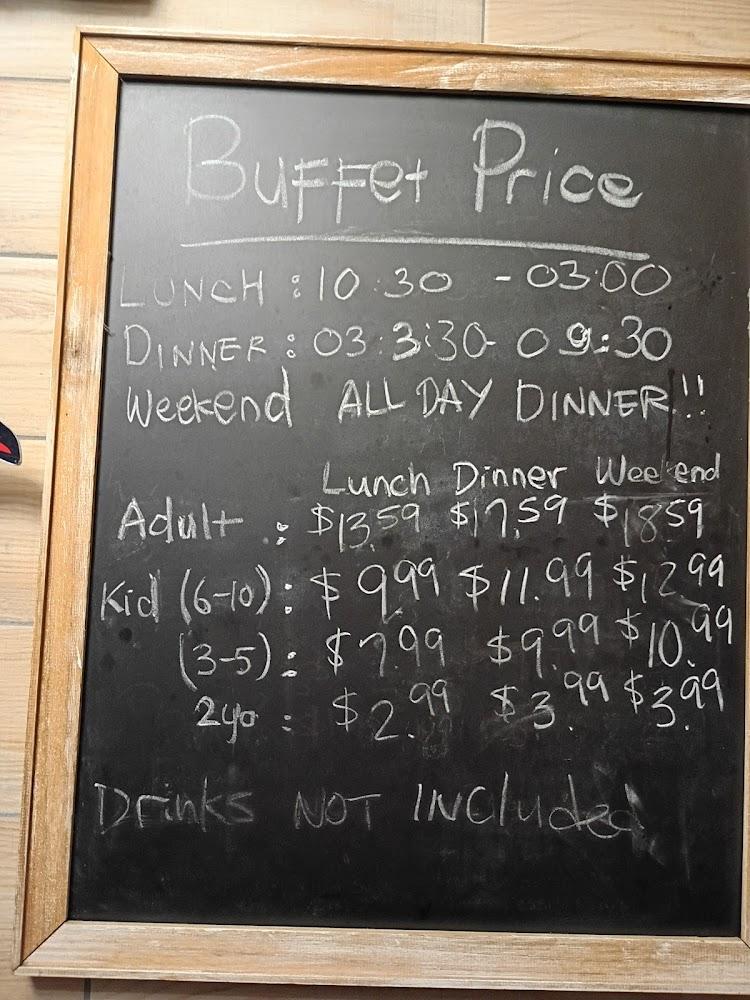 Buffet Price
LUNCH : 10:30 - 03:00
DINNER : 03:3:30- 09:30
Weekend ALL DAY DINNER!!
Lunch Dinner Weekend
Adult : $13.59 $17.59 $18.59
Kid (6-10) : $9.99 $11.99 $12.99
(3-5) : $7.99 $9.99 $10.99
2yo : $2.99 $3.99 $3.99
Drinks NOT INCluded